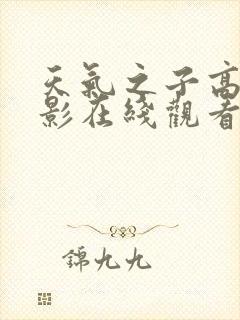 天氣之子高
影在綫觀看
錦九九